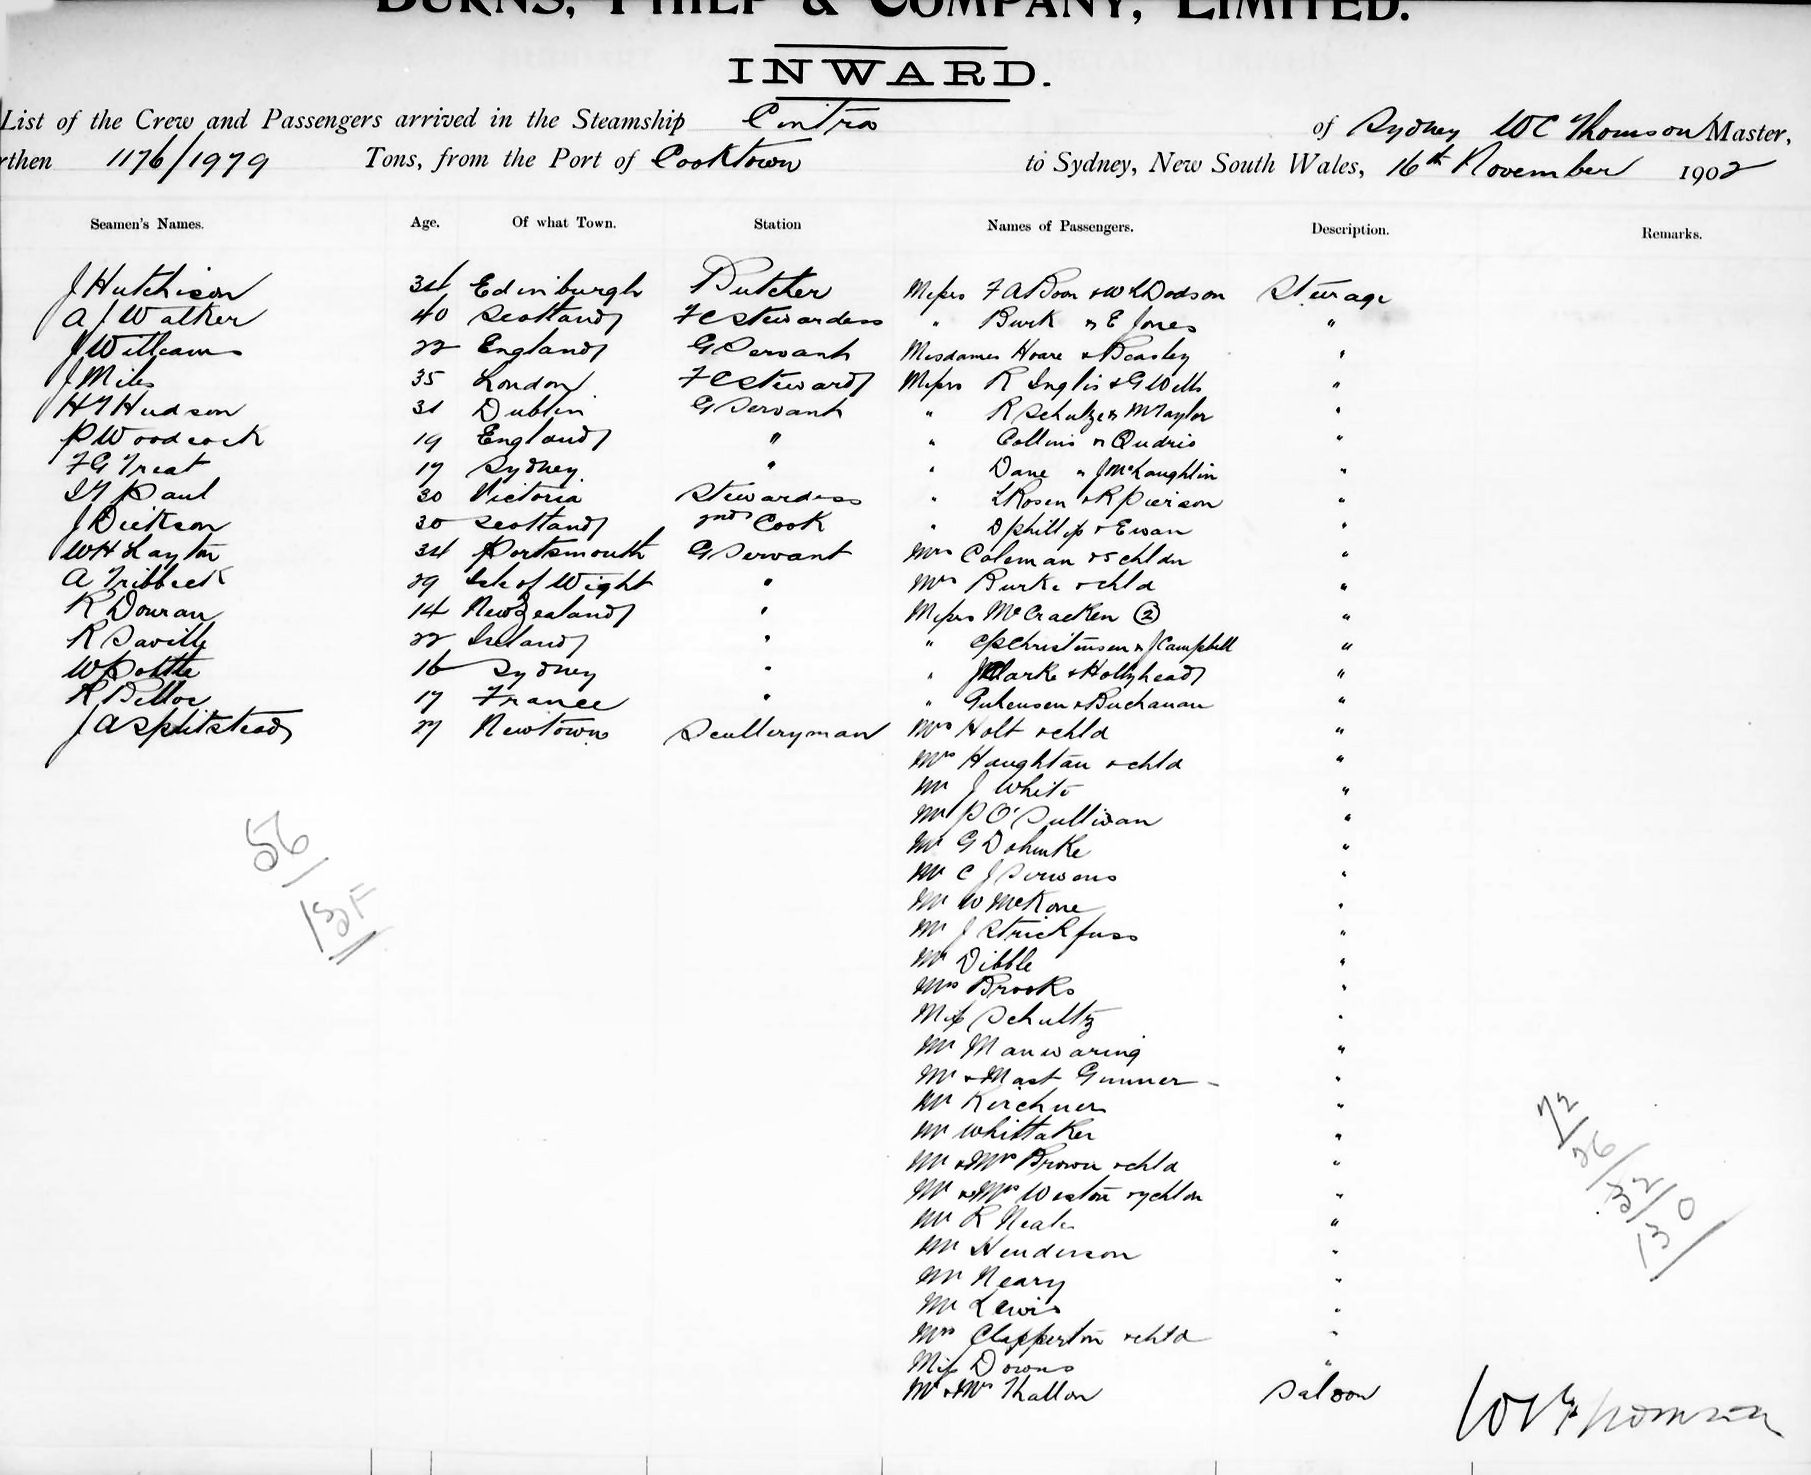 BURNS, PHILP & COMPANY, LIMITED.
INWARD.
List of the Crew and Passengers arrived in the Steamship Cintra of Sydney WC Thomson Master,
rthen 1176/1979 Tons, from the Port of Cooktown to Sydney, New South Wales, 16th November 1902
Seamen's Names. Age. Of what Town. Station Names of Passengers. Description. Remarks.
J Hutchison 34 Edinburgh Butcher Messrs F A Boon & W L Dodson Steerage
A J Walker 40 Scotland F C Stewardess " Burk & E Jones "
J Williams 22 England G Servant Mesdames Hoare & Beasley "
J Miles 35 London F C Steward Messrs R Inglis & G Wells "
H T Hudson 31 Dublin G Servant " R Schulze & M Taylor "
P Woodcock 19 England " " Collins & Qudris "
F G Treat 17 Sydney " " Dane & J McLaughlin "
Paul 30 Victoria Stewardess " L Rosen & R Pierson "
J Dickson 30 Scotland 2nd Cook " D Phillip & Ewan "
W H Layton 34 Portsmouth G Servant Mrs Coleman & 5 chldn "
A Tribbeck 29 Isle of Wight " Mrs Burke & chld "
R Dowran 14 New Zealand " Messrs McCracken (2) "
R Saville 22 Ireland " " C P Christensen & J Campbell "
W Pottle 16 Sydney " " J Clarke & Hollyhead "
R Belloc 17 France " " & Buchanan "
J A Splitstead 27 Newtown Sculleryman Mrs Holt & chld "
Mrs Haughtan & chld "
Mr J White "
Mr P O'Sullivan "
Mr G Dohmke "
Mr C J Parsons "
Mr W McKone "
Mr J Strickfuss "
Mr Dibble "
Mrs Brooks "
Miss Schultz "
Mr Manwaring "
Mr & Mast Gunner "
Mr Kirchner "
Mr Whittaker "
Mr & Mrs Brown & chld "
Mr & Mrs Weston & chldn "
Mr R Neale "
Mr Henderson "
Mr Neary "
Mr Lewis "
Mrs Clapperton & chld "
Miss Downs "
Mr & Mrs Thallon Saloon
56/
72/
26/
32/
130
WC Thomson